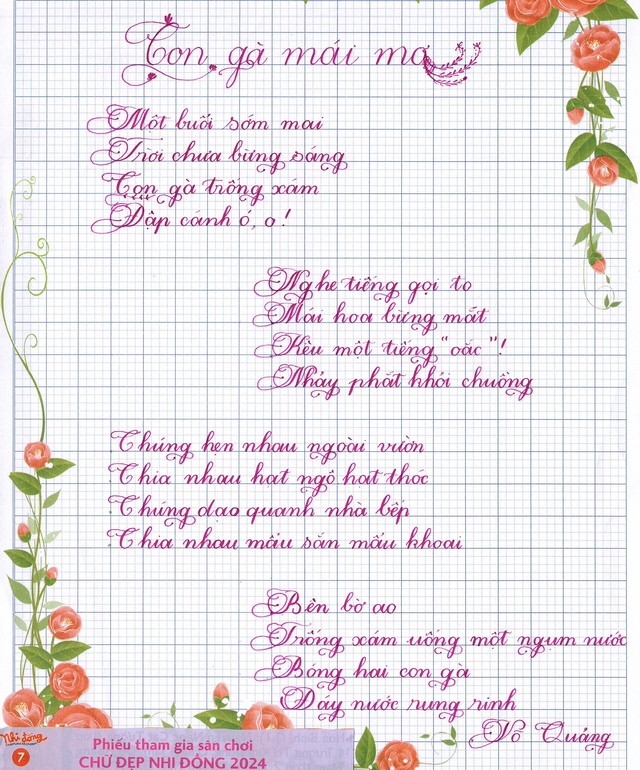 Con gà mái mơ
Một buổi sớm mai
Trời chưa bừng sáng
Con gà trống xám
Đập cánh ó, o!
Nghe tiếng gọi to
Mái hoa bừng mắt
Kêu một tiếng "oắc"!
Nhảy phắt khỏi chuồng
Chúng hẹn nhau ngoài vườn
Chia nhau hạt ngô hạt thóc
Chúng dạo quanh nhà bếp
Chia nhau mẩu sắn mẩu khoai
Bên bờ ao
Trống xám uống một ngụm nước
Bóng hai con gà
Đáy nước rung rinh
Võ Quảng
Nhi đồng
7
Phiếu tham gia sân chơi
CHỮ ĐẸP NHI ĐỒNG 2024